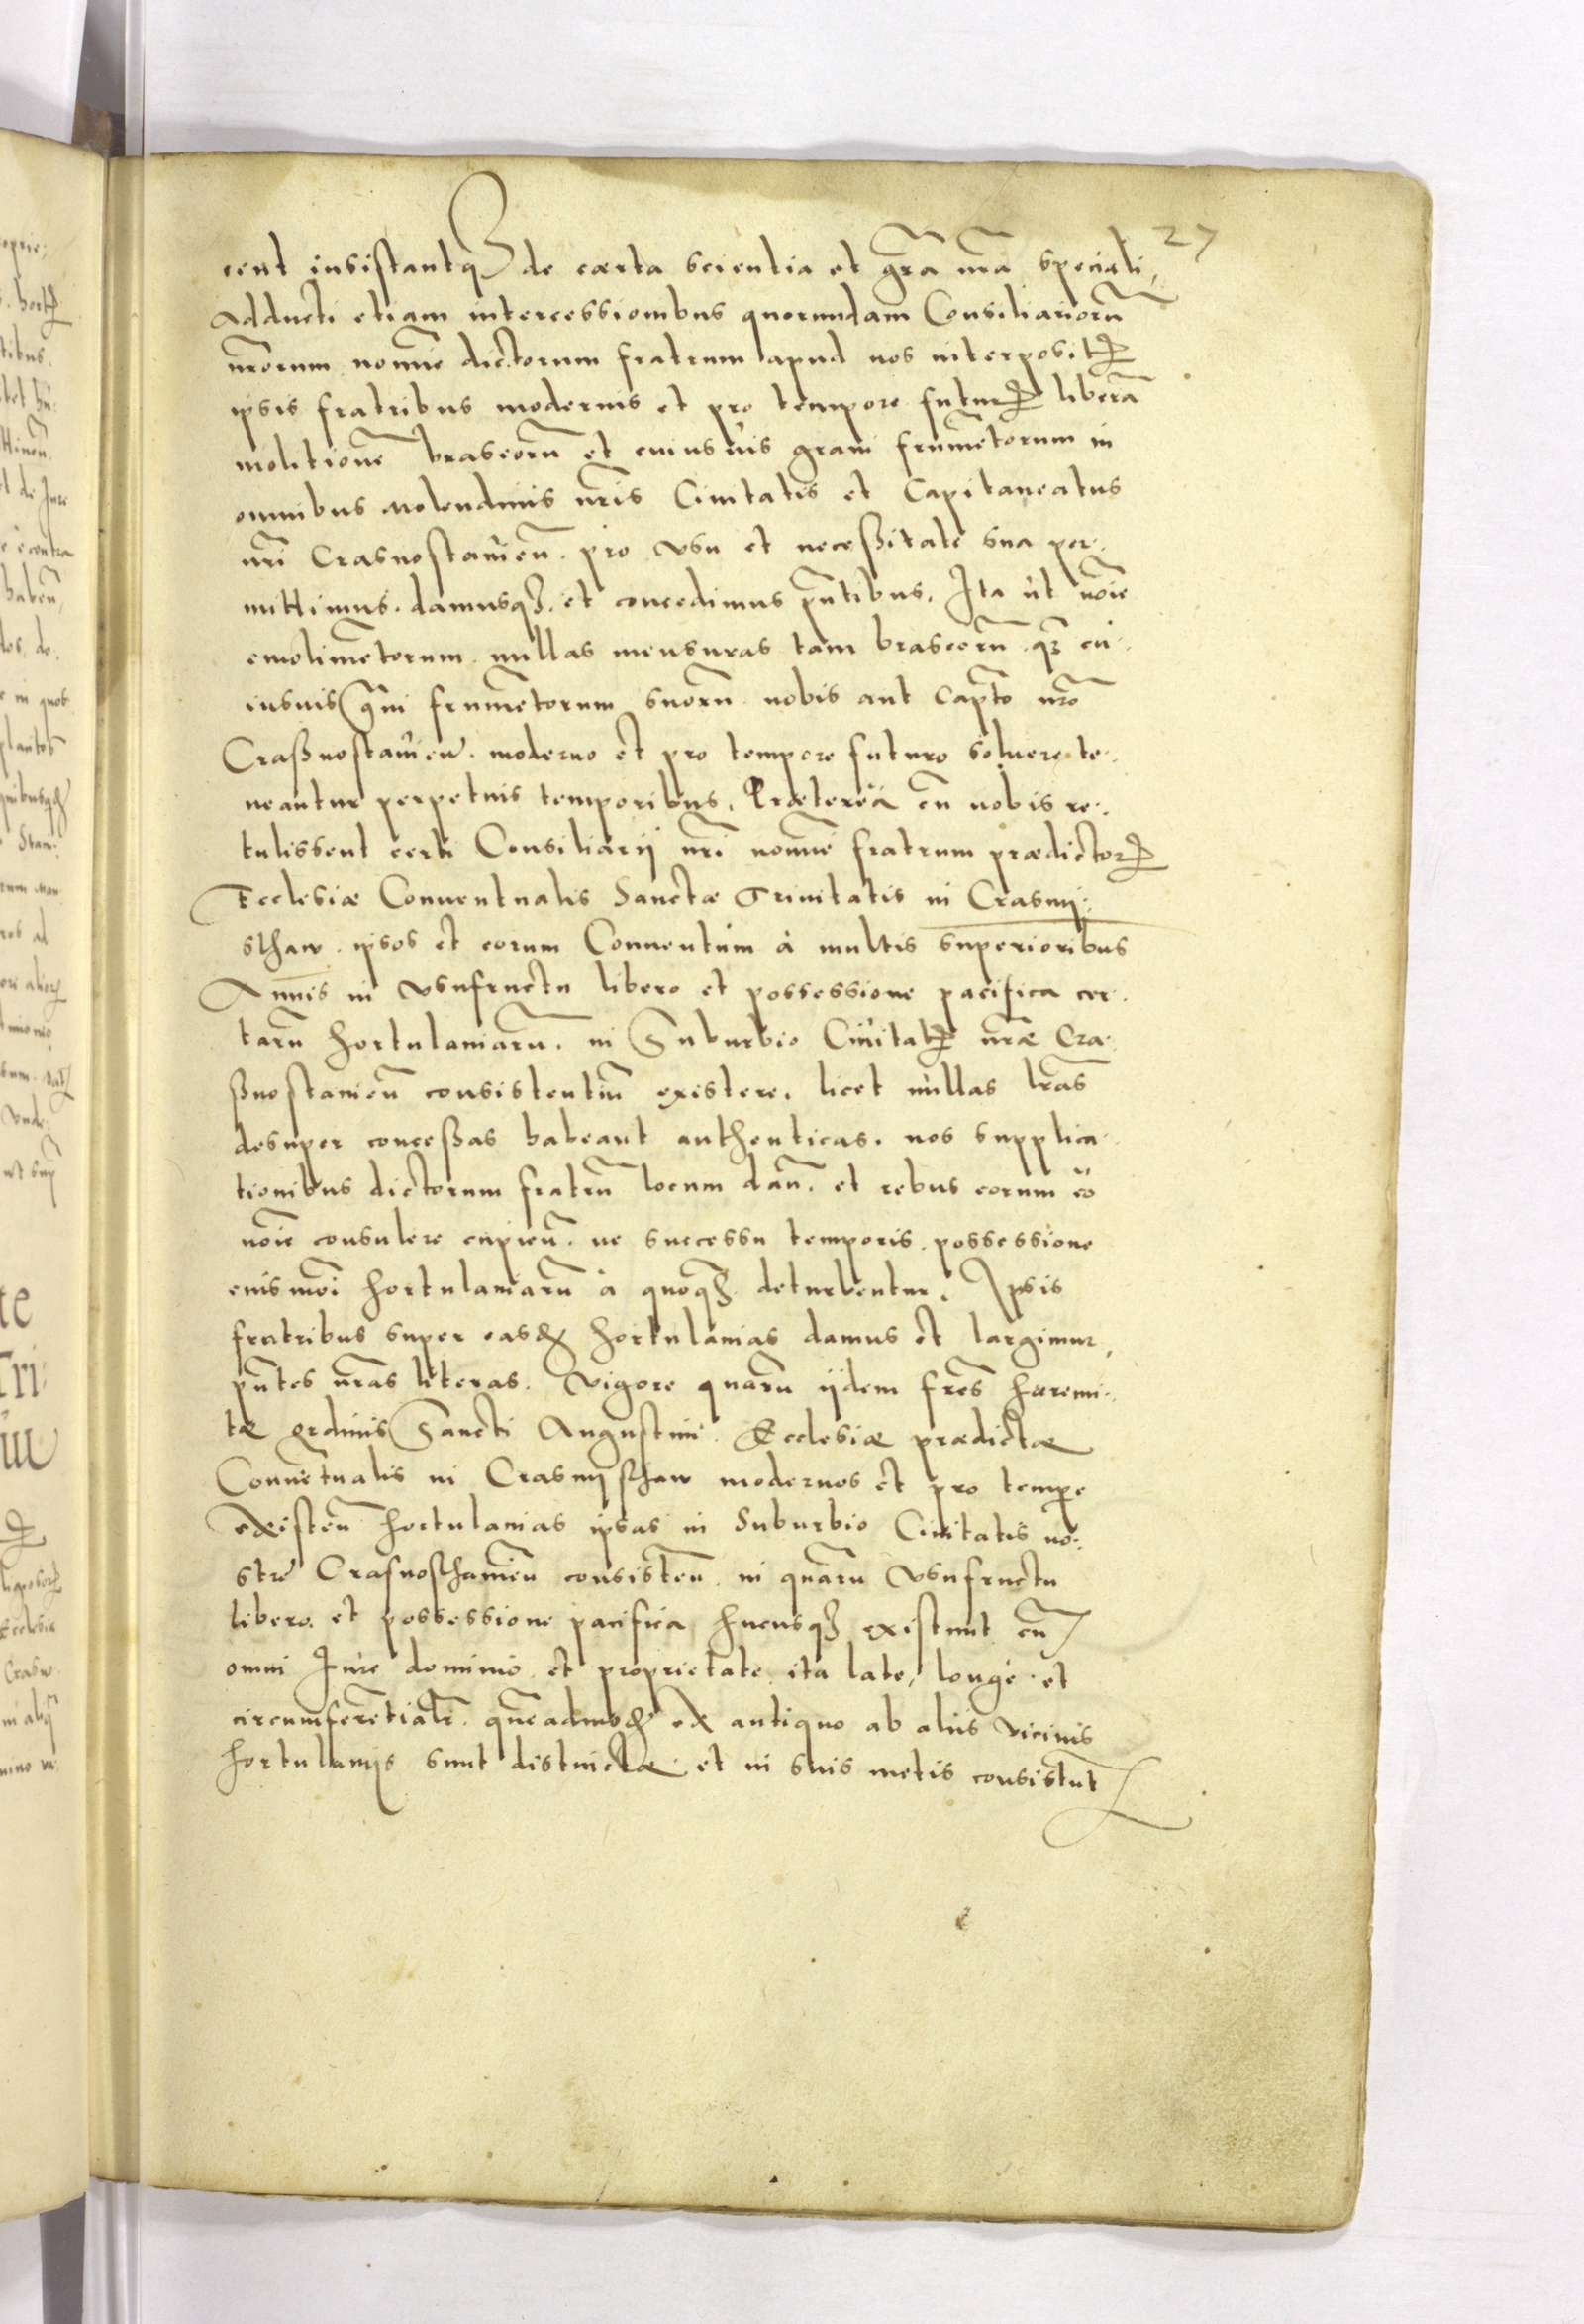 27
cent insistantqꝫ de cærta scientia et gr̃a nr̃a speciali,
Adducti etiam intercessionibus quorundam Consiliariorũ
nr̃orum nomine dictorum fratrum apud nos interpositꝶ
ipsis fratribus modernis et pro tempore futurꝶ liberã
molitionẽ braseorũ et cuiusuis grani frumẽtorum in
omnibus Molendinis nr̃is Ciuitatis et Capitaneatus
nr̃i Crasnostauieñ. pro vsu et neceßitate sua per-
mittimus. damusqꝫ. et concedimus pñtibus. Ita ut noĩe
emolimẽtorum nullas mensuras tam braseorũ qꝫ cu-
iusuis grani frumẽtorum suorũ nobis aut Capt̃o nr̃o
Craßnostauieñ. moderno et pro tempore futuro soluere te-
neantur perpetuis temporibus. Præterea cũ nobis re-
tulissent certi Consiliarij nr̃i nomine fratrum prædictorꝶ
Ecclesiæ Conuentualis Sanctæ Trinitatis in Crasny-
sthaw. ipsos et eorum Conuentum à multis superioribus
Annis in vsufructu libero et possessione pacifica cer-
tarũ hortulaniarũ. in Suburbio Ciuitatꝶ nr̃æ Cra-
ßnostauieñ consistentiũ existere. licet nullas lr̃as
desuper conceßas habeant authenticas. nos supplica-
tionibus dictorum fratrũ locum dañ. et rebus eorum eo
noĩe consulere cupieñ. ne successu temporis possessione
euismoĩ hortulaniarũ à quoqꝫ deturbentur. Ipsis
fratribus super easdẽ hortulanias damus et largimur,
pñtes nr̃as literas. Vigore quarũ ijdem fr̃es hæremi-
tæ ordinis Sancti Augustini. Ecclesiæ prædictæ
Conuẽtualis in Crasnysthaw modernos et pro tempe
existeñ hortulanias ipsas in Suburbio Ciuitatis no-
stre Crasnosthauieñ consisteñ. in quarũ vsufructu
libero. et possessione pacifica hucusqꝫ existunt cũ
omni Iure dominio et proprietate ita late, longe et
circumferẽtialr̃. quẽadmodũ ex antiquo ab aliis vicinis
hortulanijs sunt distinctæ et in suis metis consistũt